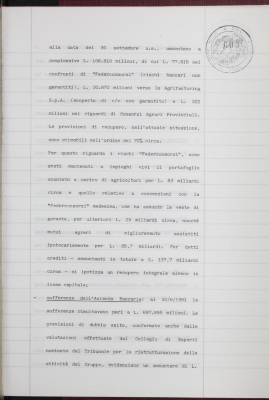 alla data del 30 settembre u.s., ammontano a
complessive L. 108.810 milioni, di cui L. 77.815 nei
confronti di "Federconsorzi" (rischi bancari non
garantiti), L. 30.670 milioni verso la Agrifactoring
S.p.A. (scoperto di c/c non garantito) e L. 325
milioni nei riguardi di Consorzi Agrari Provinciali.
Le previsioni di recupero, nell'attuale situazione,
sono stimabili nell'ordine del 70% circa.
Per quanto riguarda i rischi "Federconsorzi", sono
stati destinati a impieghi vivi il portafoglio
scontato a carico di agricoltori per L. 83 miliardi
circa e quello relativo a convenzioni con la
"Federconsorzi" medesima, che ha assunto la veste di
garante, per ulteriori L. 29 miliardi circa, nonché
mutui agrari di miglioramento assistiti
ipotecariamente per L. 25,7 miliardi. Per detti
crediti - ammontanti in totale a L. 137,7 miliardi
circa - si ipotizza un recupero integrale almeno in
linea capitale;
- sofferenze dell'Azienda Bancaria: al 30/9/1991 le
sofferenze risultavano pari a L. 697.650 milioni. Le
previsioni di dubbio esito, confermate anche dalle
valutazioni effettuate dal Collegio di Esperti
nominato dal Tribunale per la ristrutturazione delle
attività del Gruppo, evidenziano un ammontare di L.